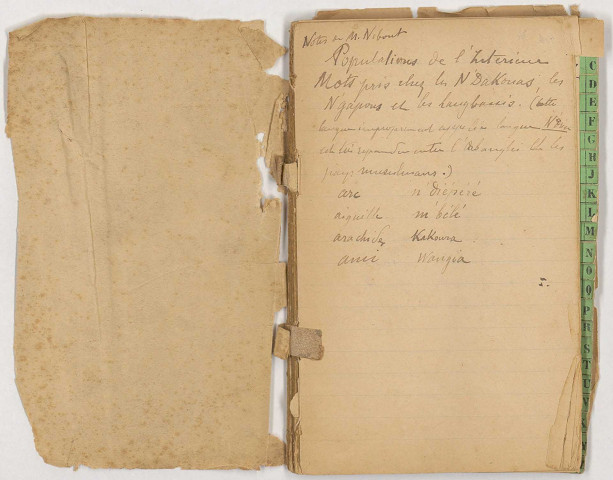 Notes de M. Nibout
Populations de l'Interieur
Mots pris chez les N'Dakouas, les
N'gapous et les Langbassis. (Cette
langue improprement langue
est très repandue entre l' les
pays musulmans.)
arc n'diésiré
aiguille m'bélé
arachides Kakoura
ami Wangia
I.
C
D
E
F
G
H
J
K
L
M
N
O
Q
P
R
S
T
U
V